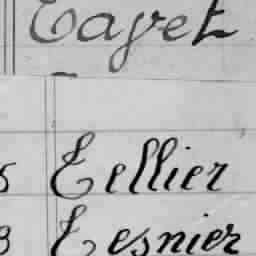 Tayet
5 Tellier
3 Tesnier